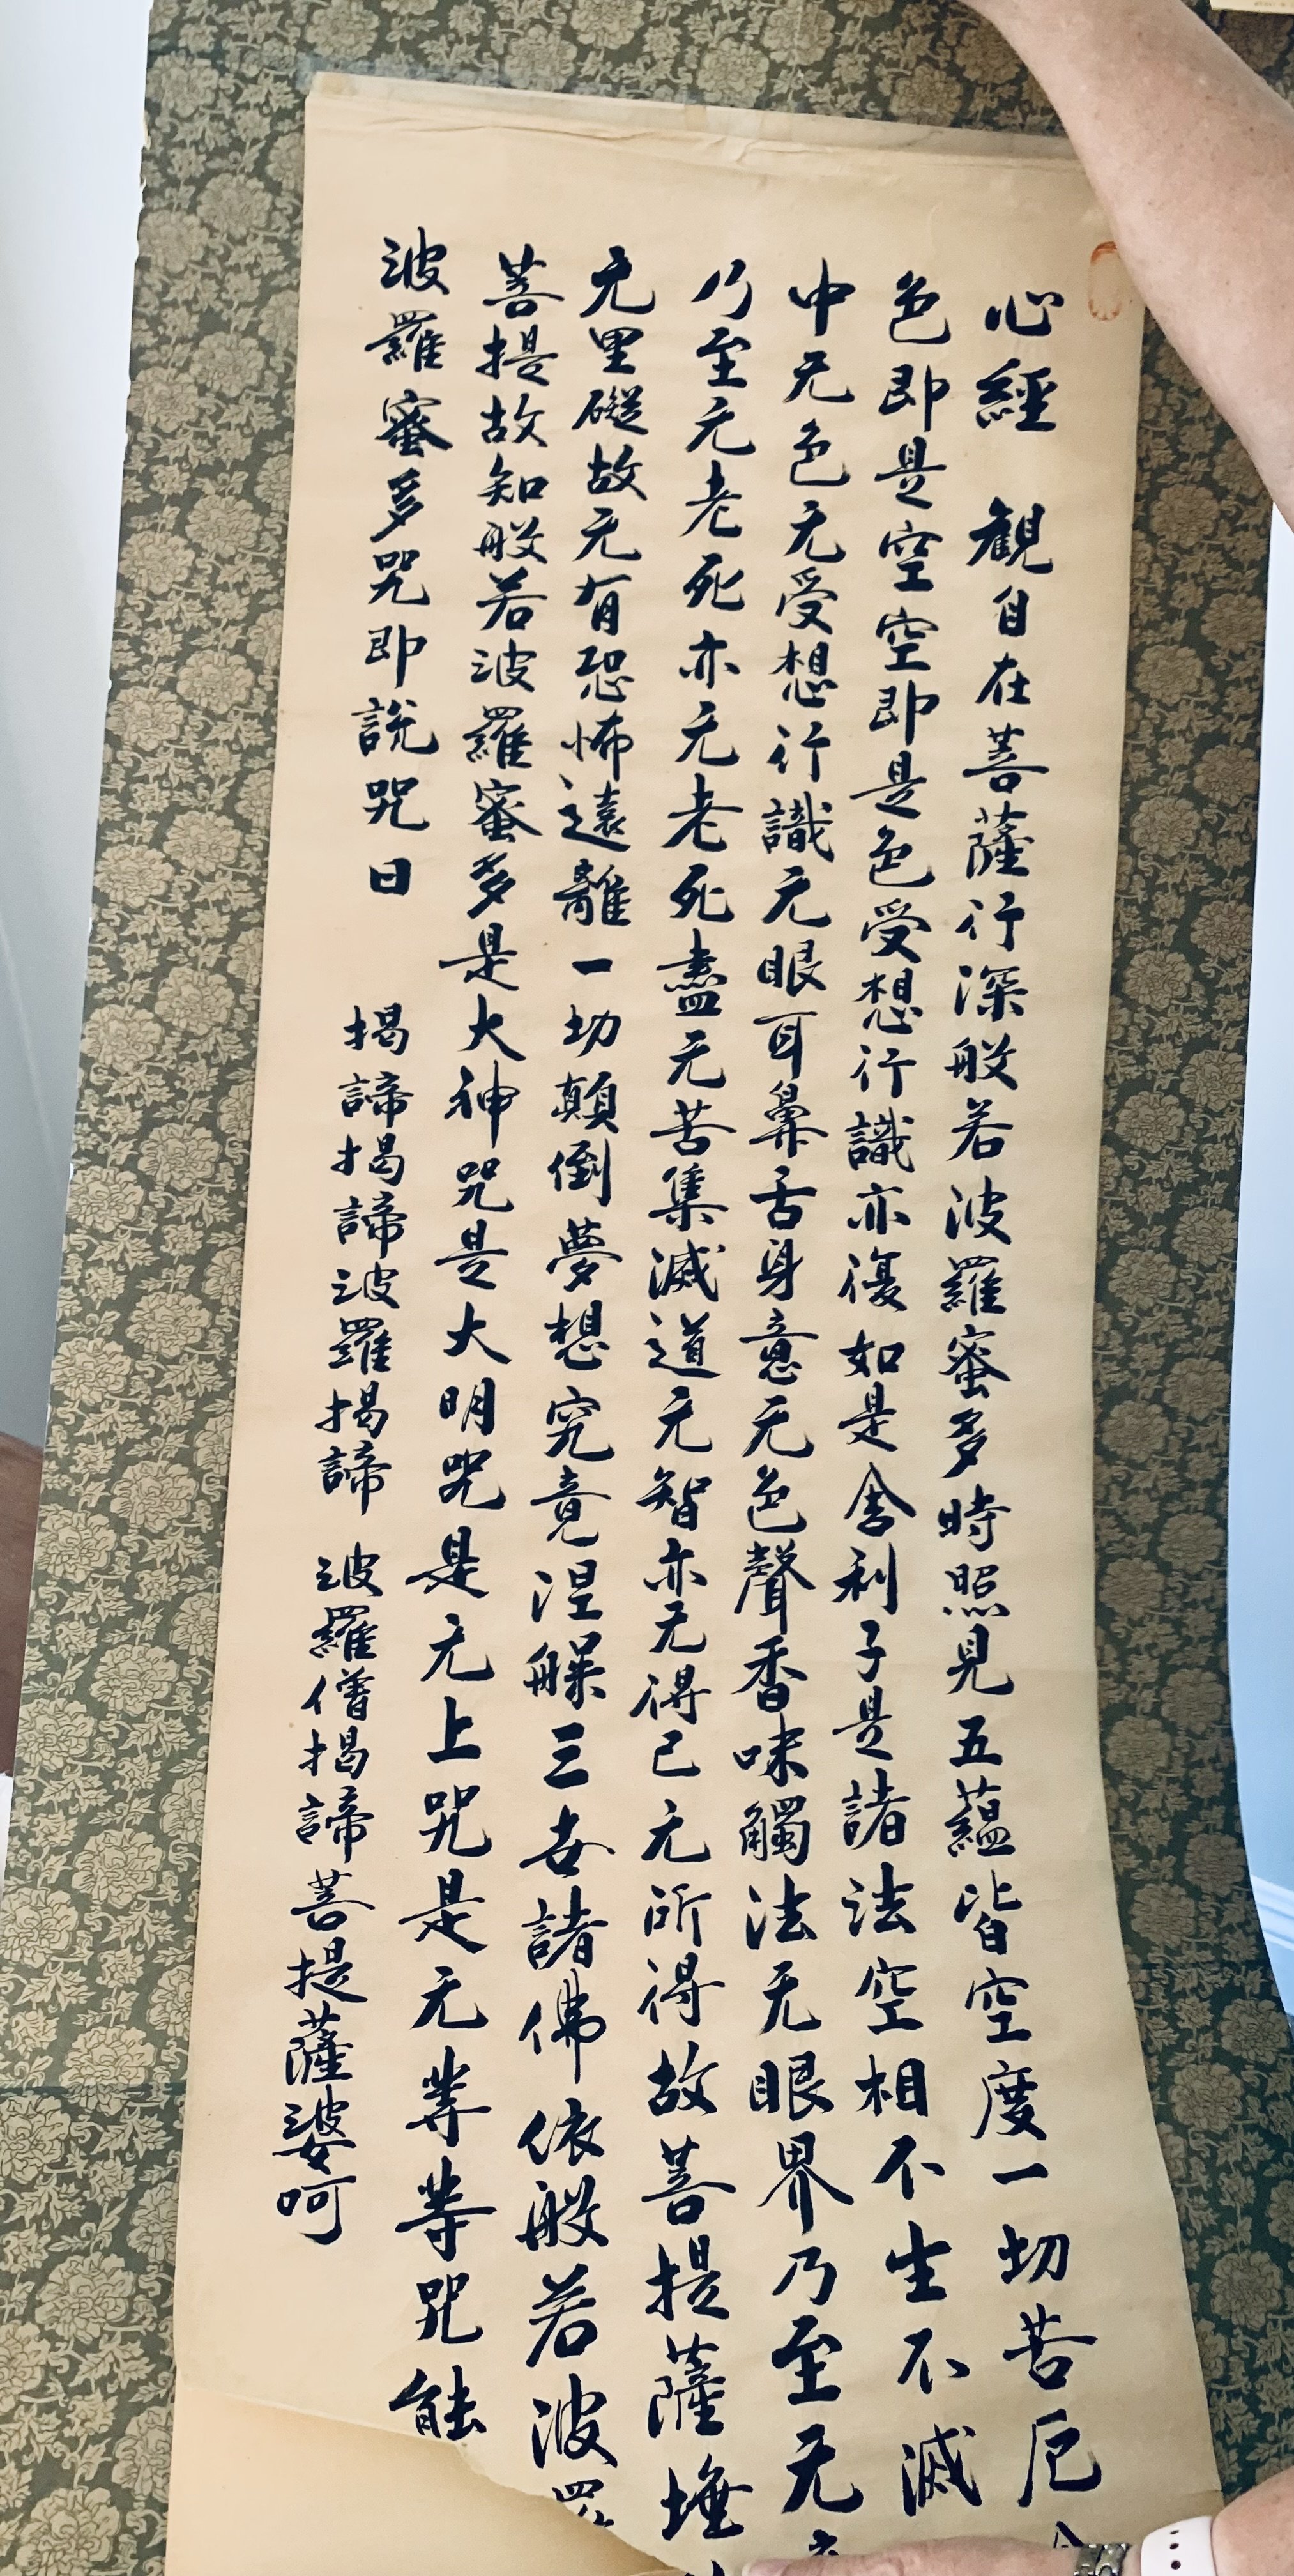 心經 觀自在菩薩行深般若波羅蜜多時照見五蘊皆空度一切苦厄
色即是空空即是色受想行識亦復如是舍利子是諸法空相不生不滅
中无色无受想行識无眼耳鼻舌身意无色聲香味觸法无眼界乃至无
乃至无老死亦无老死盡无苦集滅道无智亦无得已无所得故菩提薩埵
无罣礙故无有恐怖遠離一切顛倒夢想究竟涅槃三世諸佛依般若波羅
菩提故知般若波羅蜜多是大神咒是大明咒是无上咒是无等等咒能
波羅蜜多咒即說咒曰 揭諦揭諦波羅揭諦 波羅僧揭諦菩提薩婆呵